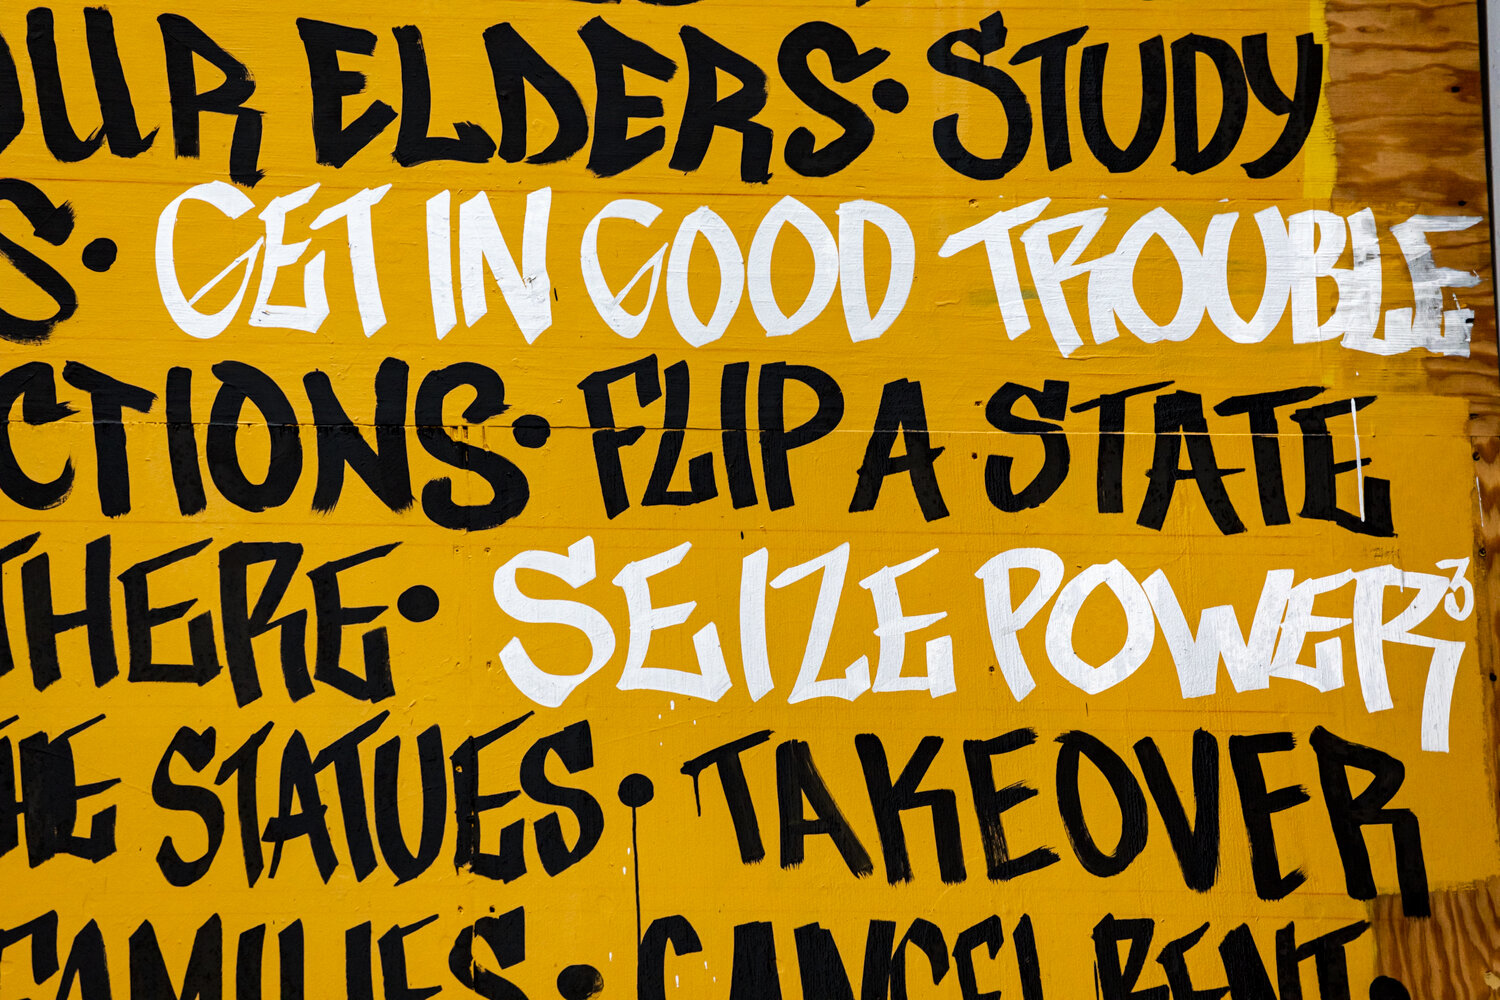 OUR ELDERS • STUDY
S • GET IN GOOD TROUBLE
CTIONS • FLIP A STATE
THERE • SEIZE POWER³
THE STATUES • TAKEOVER
FAMILIES • CANCEL RENT •